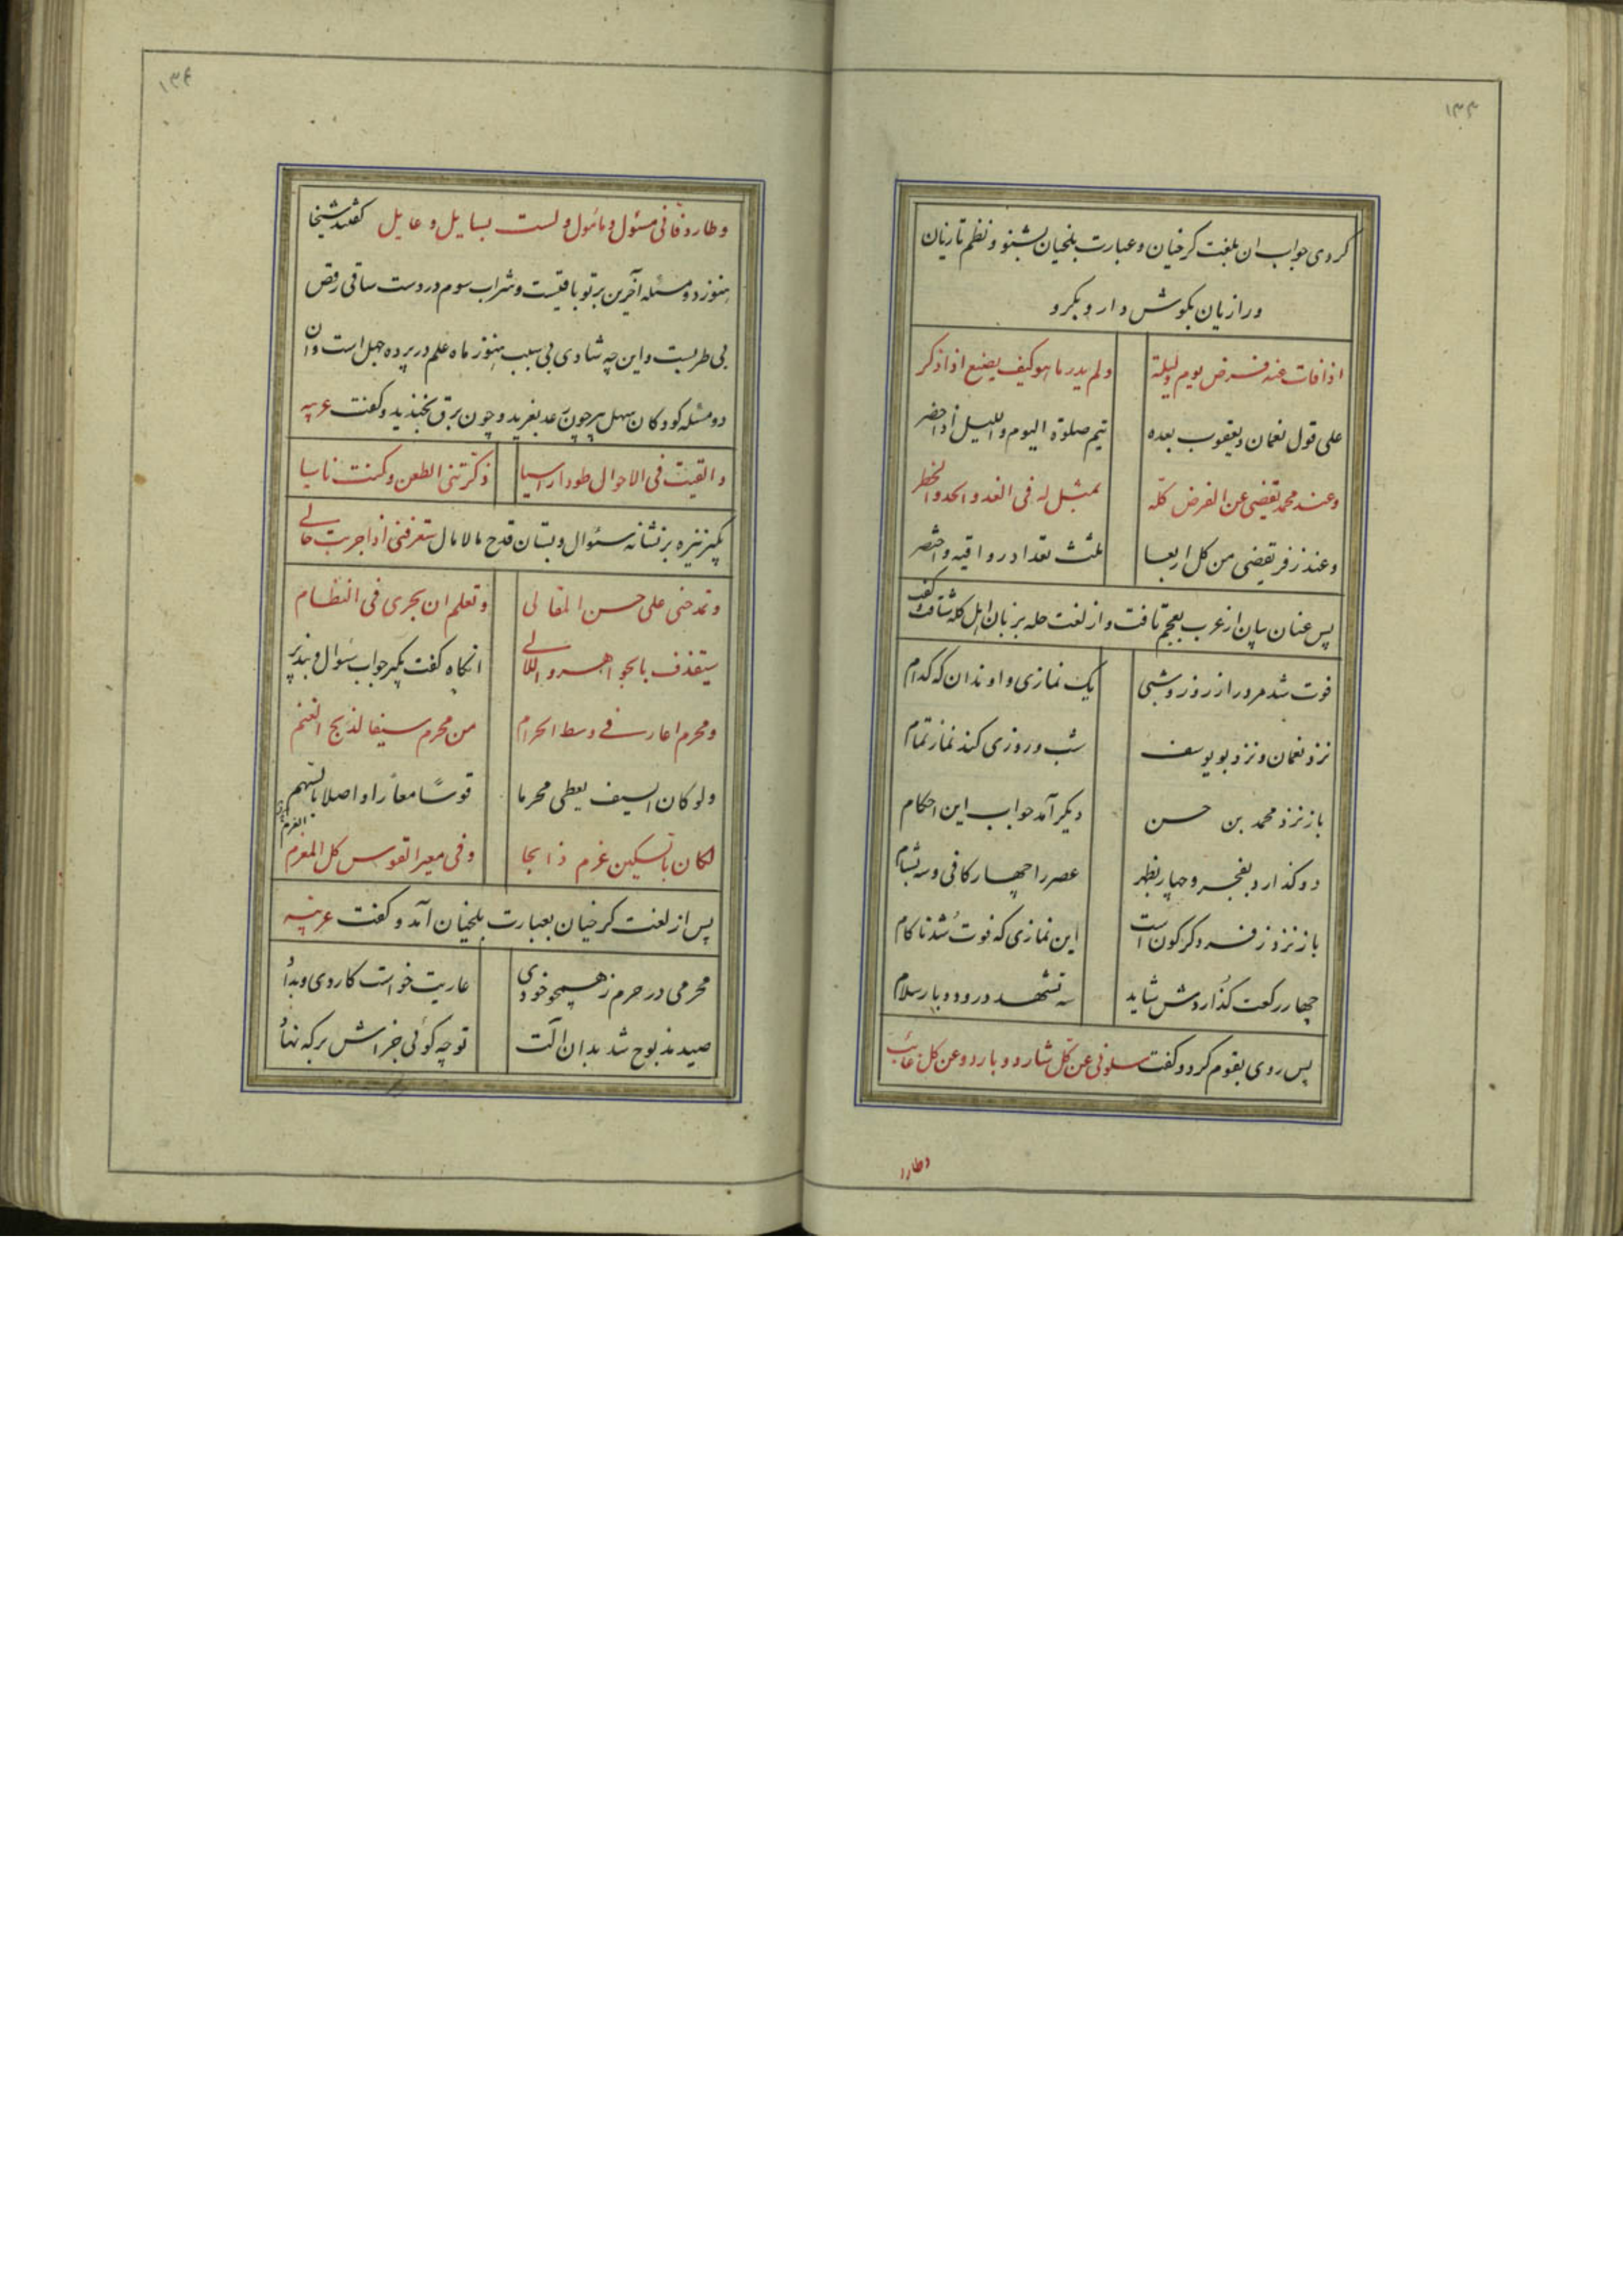 ۱۳۳
کردی جواب ان بلغت کرخیان و عبارت بلخیان بشنو و نظم تازیان
ورازیان بکوش دار و بکرو
اذا فات عنه فرض یوم ولیلة ولم یدر ما هو کیف یصنع اذا ذکر
علی قول نعمان ویعقوب بعده تیم صلوة الیوم واللیل اذا حضر
وعند محمد تقضی عن الفرض کله بمثل له فی العد والحد والخطر
وعند زفر یقضی من کل اربعا بلث تعداد رواقیه واختصر
پس عنان بیان از عرب بعجم تافت و از لغت حله بزبان اهل کله شتافت و کفت
فوت شد مرورا ز روز و شبی یک نمازی و او نداند که کدام
نزد نعمان و نزد بو یوسف شب و روزی کند نماز تمام
باز نزد محمد بن حسن دیکر آمد جواب این احکام
دو کذارد بفجر و چهار بظهر عصر را چهار کافی و سه بشام
باز نزد زفر دکر کون است این نمازی که فوت شد ناکام
چهار رکعت کذاردش شاید سه تشهد درو دو بار سلام
پس روی بقوم کرد و کفت سلونی عن کل شارد و بارد وعن کل غائب
وطارد
۱۳۴
وطارد فانی مسئول ومأمول ولست بسایل وعایل کفتند شیخا
هنوز دو مسئله آخرین بر تو باقیست و شراب سوم در دست ساقی رقص
بی طربست و این چه شادی بی سبب هنوز ماه علم در پرده جهل است وان
دو مسئله کودکان سهل پیر چون رعد بغرید و چون برق بخندید و کفت عربیه
والقیت فی الاحوال طودا راسیا ذکرتنی الطعن وکنت ناسیا
بکیر نیزه بر نشانه سئوال و بستان قدح مالامال ستعرفنی اذا جربت حالے
وتمدحنی علی حسن المقالی وتعلم ان بحری فی النظام
سیقذف بالجواهر واللالے انکاه کفت بکیر جواب سؤال و بپذیر
ومحرم اعار فے وسط الحرام من محرم سیفا لذبح الغنم
ولو کان السیف یعطی محرما قوسًا معارا واصلا بالسهم
لکان بالسکین غرم ذابحا وفی معیر القوس کل المغرم
پس از لغت کرخیان بعبارت بلخیان آمد و کفت عربیّه
محرمی در حرم ز همچو خودی عاریت خواست کاردی وبداد
صید مذبوح شد بدان آلت تو چه کوئی جزاش بر که نهاد